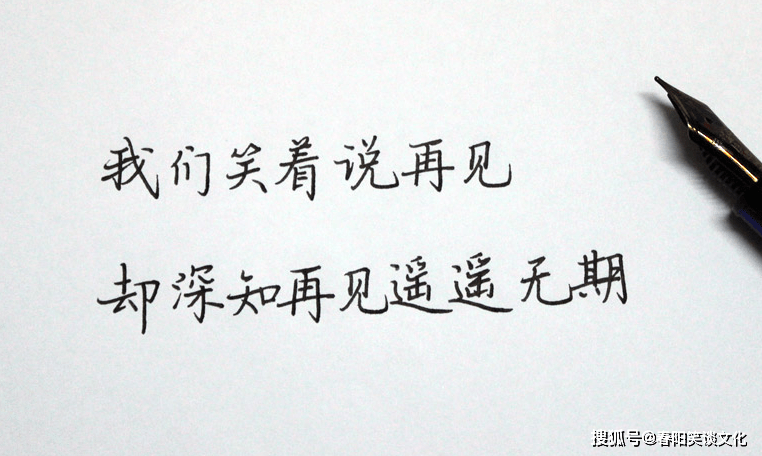 我们笑着说再见
却深知再见遥遥无期
搜狐号@春阳笑谈文化